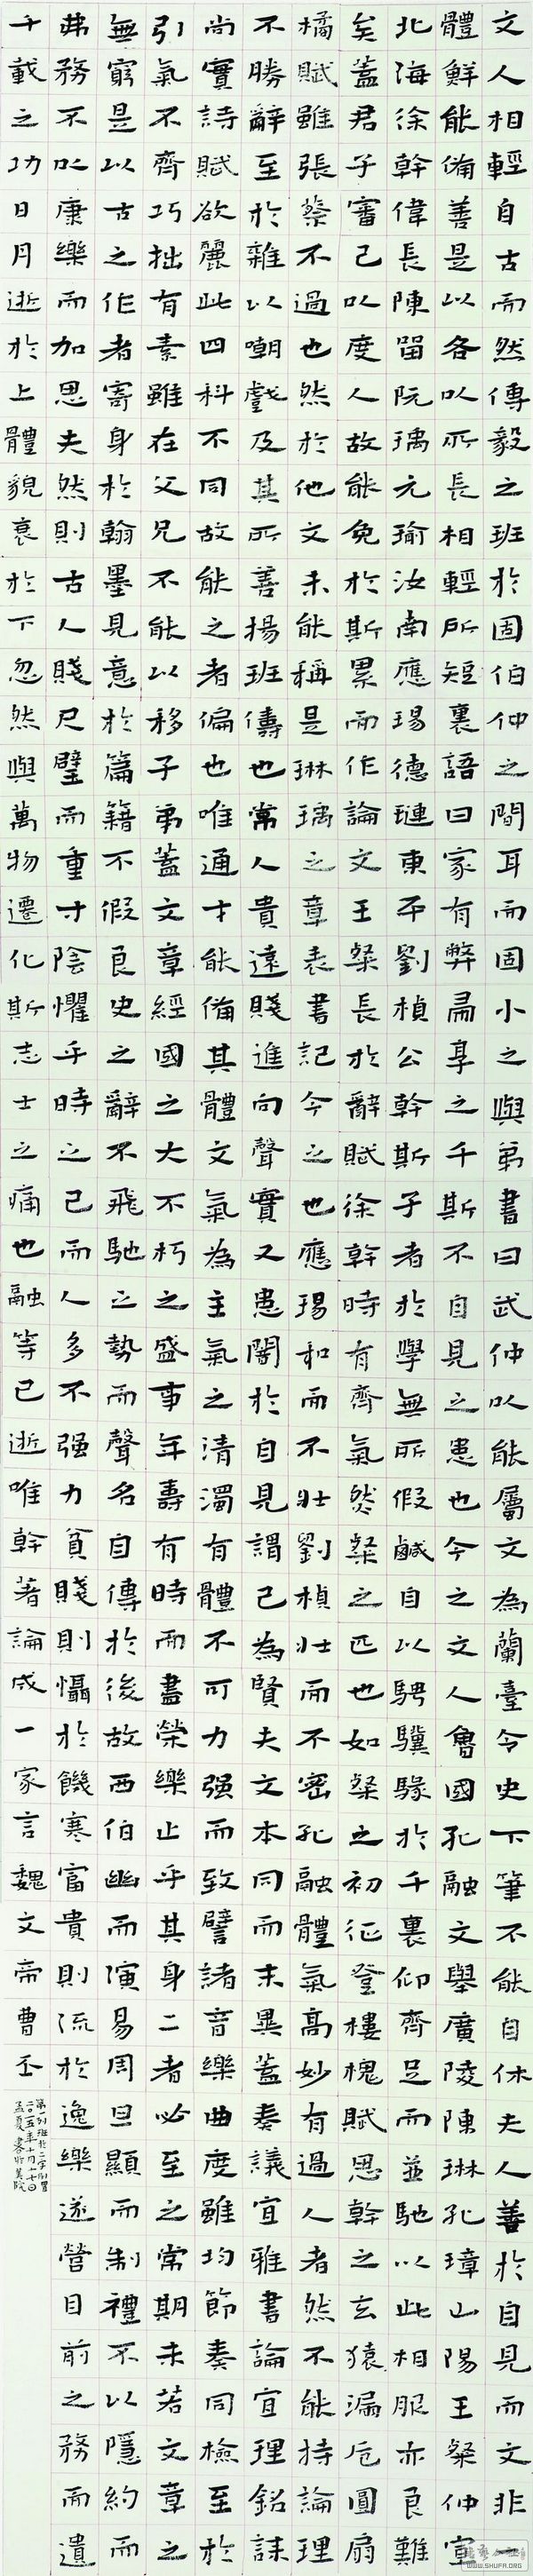 文人相輕自古而然傅毅之班於固伯仲之間耳而固小之與弟書曰武仲以能屬文為蘭臺令史下筆不能自休夫人善於自見而文非一
體鮮能備善是以各以所長相輕所短裏語曰家有弊帚享之千斯不自見之患也今之文人魯國孔融文舉廣陵陳琳孔璋山陽王粲仲宣
北海徐幹偉長陳留阮瑀元瑜汝南應瑒德璉東平劉楨公幹斯子者於學無所假鹹自以騁驥騄於千裏仰齊足而並馳以此相服亦良難
矣蓋君子審己以度人故能免於斯累而作論文王粲長於辭賦徐幹時有齊氣然粲之匹也如粲之初征登樓槐賦思幹之玄猿漏卮圓扇
橘賦雖張蔡不過也然於他文未能稱是琳瑀之章表書記今之也應瑒和而不壯劉楨壯而不密孔融體氣高妙有過人者然不能持論理
不勝辭至於雜以嘲戲及其所善揚班儔也常人貴遠賤進向聲實又患闇於自見謂己為賢夫文本同而末異蓋奏議宜雅書論宜理銘誄
尚實詩賦欲麗此四科不同故能之者偏也唯通才能備其體文氣為主氣之清濁有體不可力强而致譬諸音樂曲度雖均節奏同檢至於
引氣不齊巧拙有素雖在父兄不能以移子弟蓋文章經國之大不朽之盛事年壽有時而盡榮樂止乎其身二者必至之常期未若文章之
無窮是以古之作者寄身於翰墨見意於篇籍不假良史之辭不飛馳之勢而聲名自傳於後故西伯幽而演易周旦顯而制禮不以隱約而
弗務不以康樂而加思夫然則古人賤尺璧而重寸陰懼乎時之已而人多不强力貧賤則懾於饑寒富貴則流於逸樂遂營目前之務而遺
千載之功日月逝於上體貌衰於下忽然與萬物遷化斯志士之痛也融等已逝唯幹著論成一家言魏文帝曹丕
第一列班於二字倒置
二〇一五年十月十七日
WWW.SHUFA.ORG